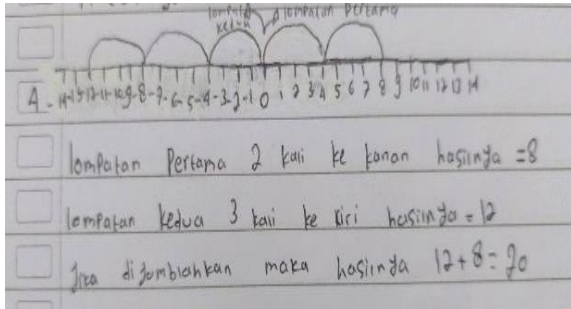 lompatan kedua
lompatan Pertama
4. -14-13-12-11-10-9-8-7-6-5-4-3-2-1 0 1 2 3 4 5 6 7 8 9 10 11 12 13 14
lompatan Pertama 2 kali ke kanan hasilnya =8
lompatan kedua 3 kali ke kiri hasilnya = 12
Jika dijumblahkan maka hasilnya 12+8= 20